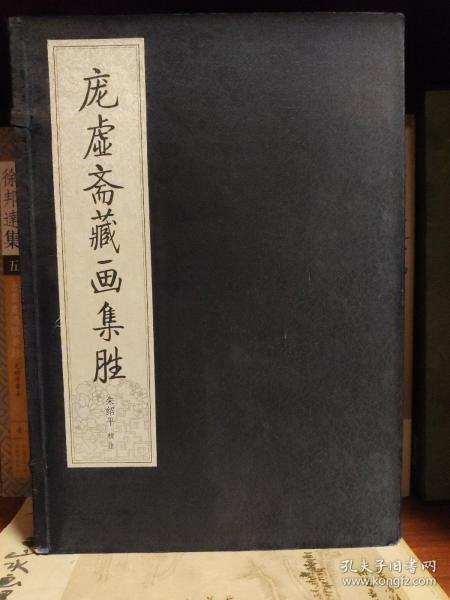 庞虚斋藏画集胜
朱绍平 校注
徐邦達集
五
孔夫子旧书网
www.kongfz.com